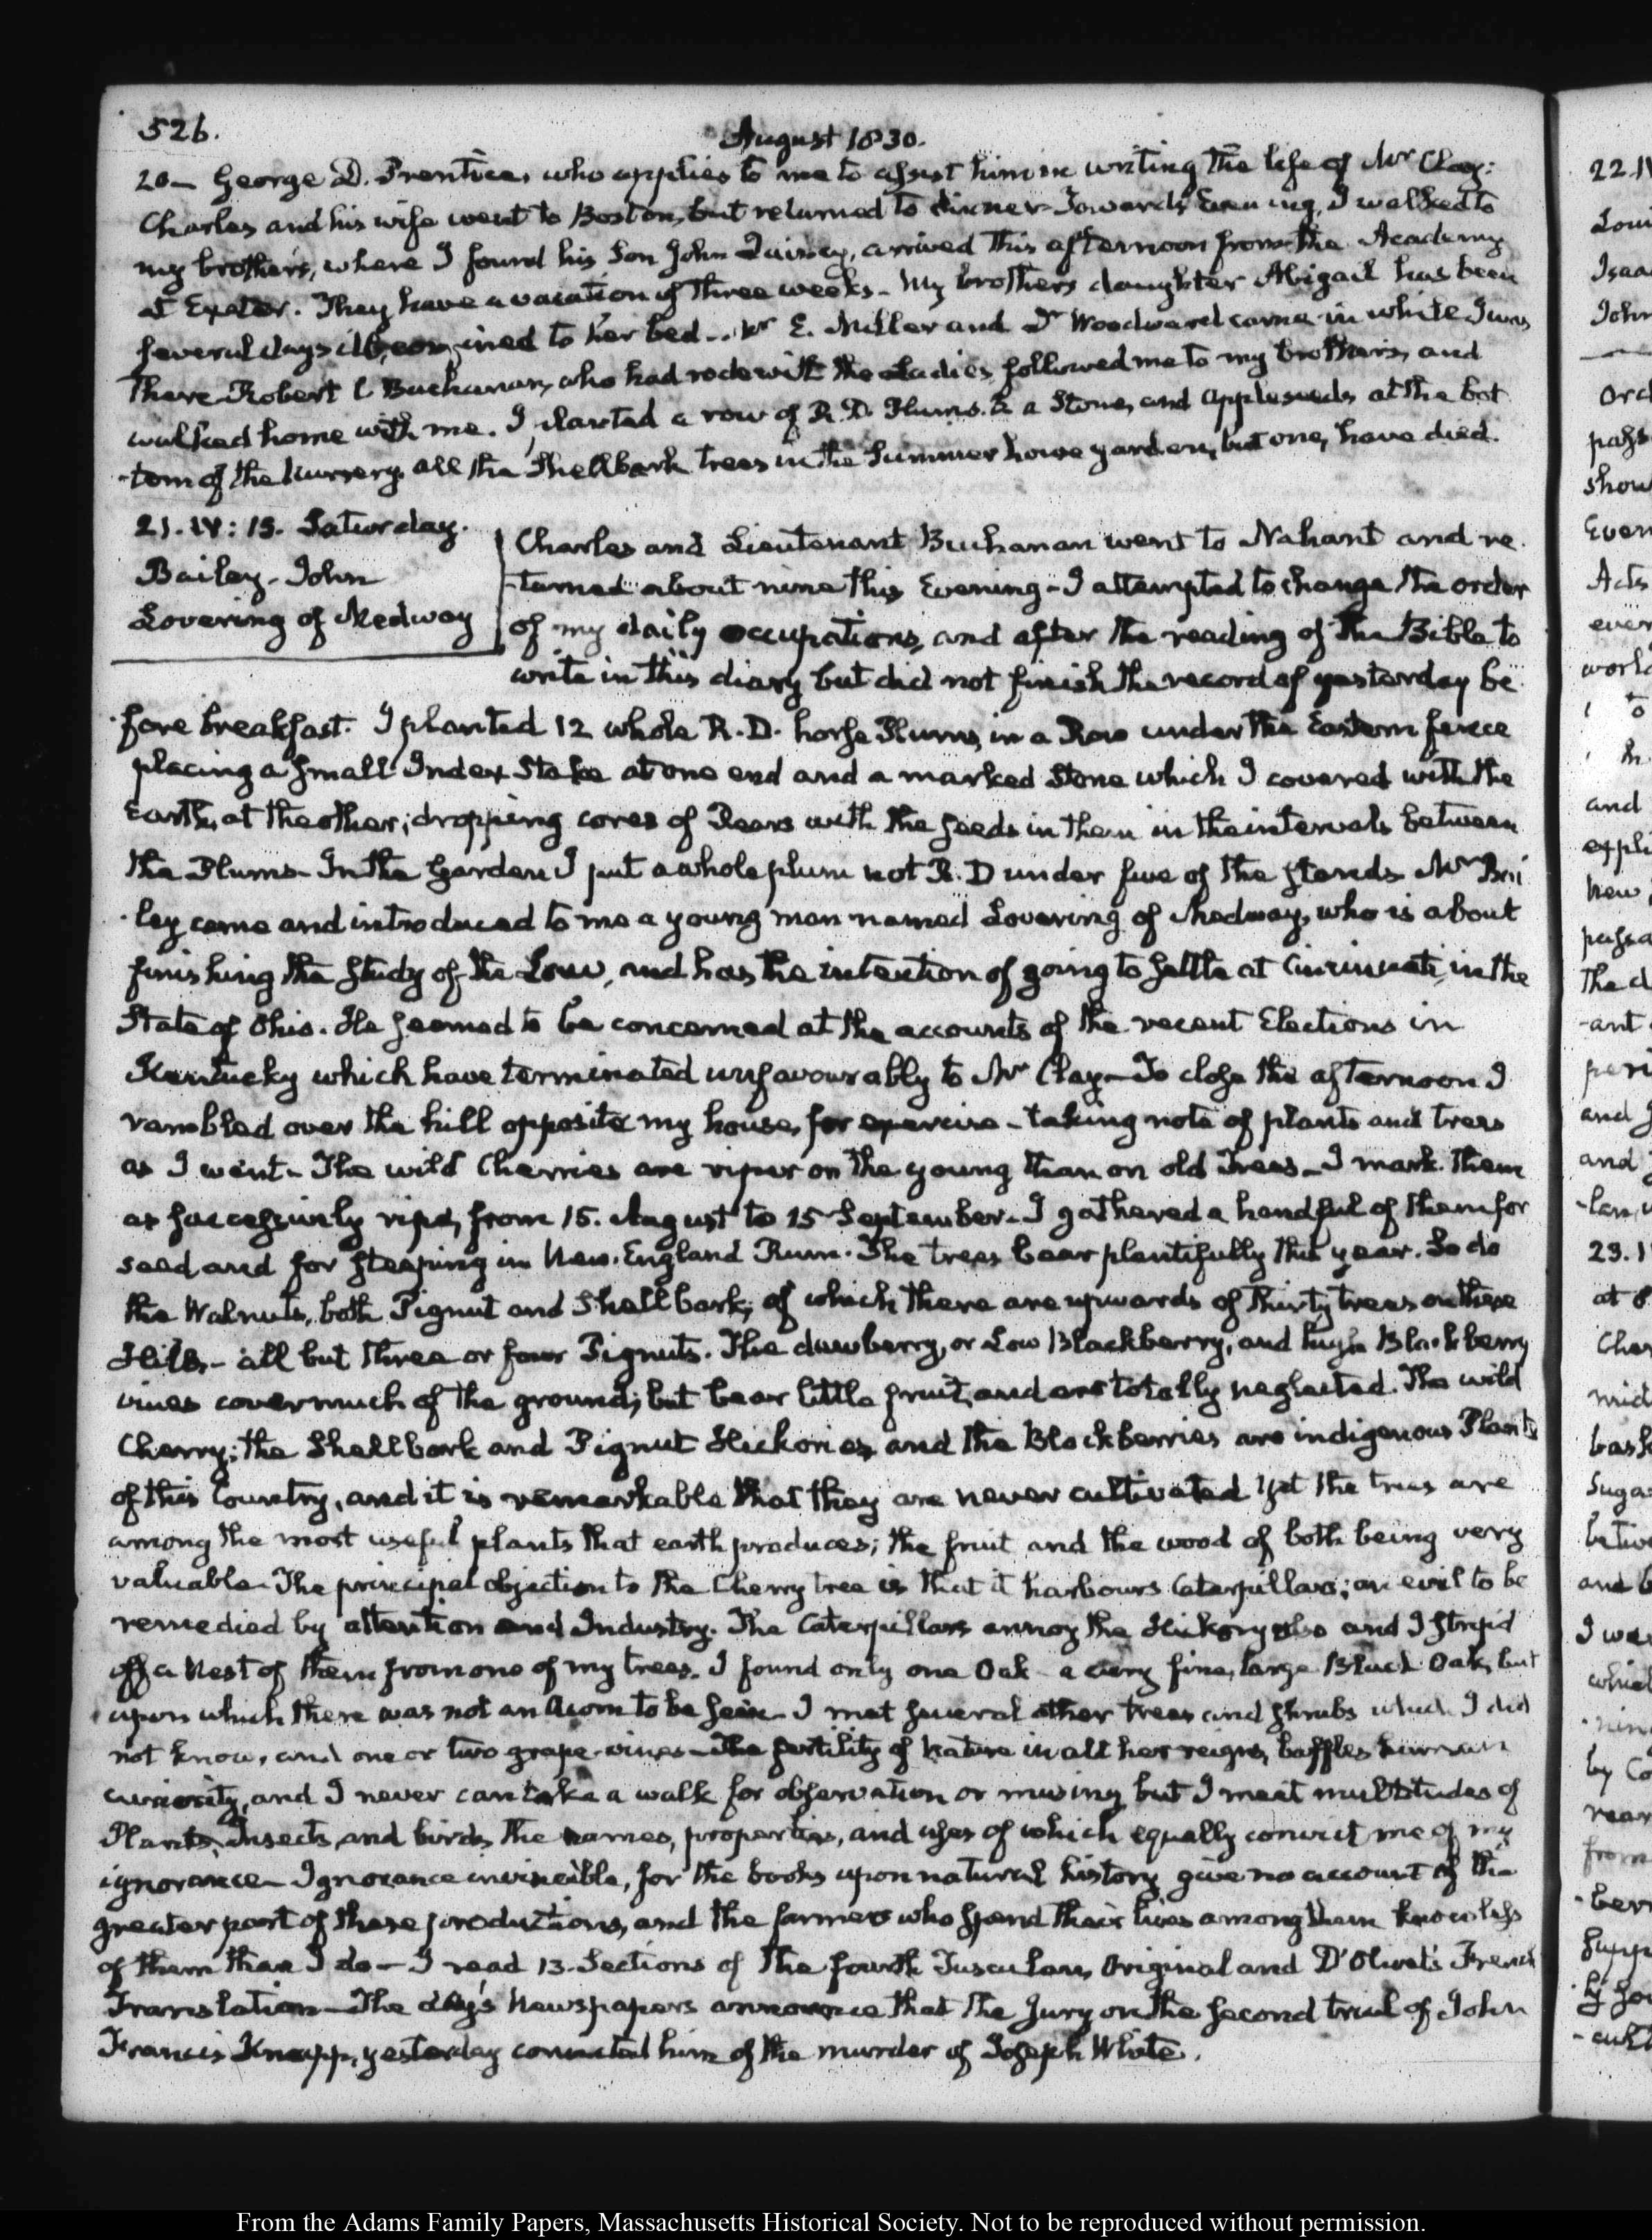 526.
August 1830.
20— George D. Prentice, who applies to me to assist him in writing the life of Mr Clay:
Charles and his wife went to Boston, but returned to dinner— Towards Evening, I walked to
my brother's, where I found his Son John Quincy, arrived this afternoon from the Academy
at Exeter. They have a vacation of three weeks— My brothers daughter Abigail has been
several days ill, confined to her bed— Mr E. Miller and Dr Woodward came in while I was
there— Robert C Buchanan, who had rode with the Ladies followed me to my brothers, and
walked home with me. I planted a row of R. D. Plums. & a Stone, and appleseeds at the bot
-tom of the Nursery. all the Shellbark trees in the Summer house garden, but one, have died.
21. IV: 15. Saturday.
Bailey— John
Lovering of Medway
Charles and Lieutenant Buchanan went to Nahant and re
-turned about nine this Evening— I attempted to change the order
of my daily occupations, and after the reading of the Bible to
write in this diary but did not finish the record of yesterday be
-fore breakfast. I planted 12 whole R. D. horse Plums, in a Row under the Eastern fence
placing a small Index Stake at one end and a marked Stone which I covered with the
Earth, at the other; dropping cores of Pears with the seeds in them in the intervals between
the Plums— In the Garden I put a whole plum not R. D under five of the stands Mr Bai
-ley came and introduced to me a young man named Lovering of Medway, who is about
finishing the study of the Law, and has the intention of going to settle at Cincinnati, in the
State of Ohio. He seemed to be concerned at the accounts of the recent Elections in
Kentucky which have terminated unfavourably to Mr Clay— To close the afternoon I
rambled over the hill opposite my house, for exercise— taking note of plants and trees
as I went— The wild Cherries are riper on the young than on old Trees— I mark them
as successively ripe, from 15. August to 15 September— I gathered a handful of them for
seed and for steeping in New-England Rum. The trees bear plentifully this year. So do
the Walnuts, both Pignut and Shellbark; of which there are upwards of thirty trees on these
Hills,— all but three or four Pignuts. The dewberry, or Low Blackberry, and high Blackberry
vines cover much of the ground; but bear little fruit, and are totally neglected. The wild
Cherry; the Shellbark and Pignut Hickories, and the Blackberries are indigenous Plants
of this Country, and it is remarkable that they are never cultivated Yet the trees are
among the most useful plants that earth produces; the fruit and the wood of both being very
valuable— The principal objection to the Cherry tree is that it harbours Caterpillars; an evil to be
remedied by attention and Industry. The Caterpillars annoy the Hickory also and I strip'd
off a Nest of them from one of my trees. I found only one Oak— a very fine, large Black Oak, but
upon which there was not an Acorn to be seen— I met several other trees and shrubs which I did
not know, and one or two grape-vines— The fertility of Nature in all her reigns, baffles human
curiosity, and I never can take a walk for observation or musing but I meet multitudes of
Plants, Insects, and birds, the names, properties, and uses of which equally convict me of my
ignorance— Ignorance invincible, for the books upon natural history give no account of the
greater part of these productions, and the farmers who spend their lives among them know less
of them than I do— I read 13. Sections of the fourth Tusculan, Original and D'Olivet's French
Translation— The day's Newspapers announce that the Jury on the second trial of John
Francis Knapp, yesterday convicted him of the murder of Joseph White.
From the Adams Family Papers, Massachusetts Historical Society. Not to be reproduced without permission.